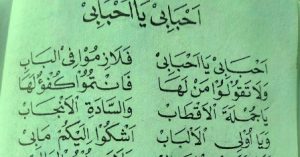 اَحْبَابِيْ يَا اَحْبَابِيْ
اَحْبَابِيْ يَا اَحْبَابِيْ فَلَازِمُوْا فِى الْبَابِ
وَلَا تَقُوْلُوْا مَنْ لَهَا فَانْتُمُوْا كُفْؤٌ لَهَا
يَاجُمْلَةَ الْاَقْطَابِ وَالسَّادَةِ الْاَنْجَابِ
وَيَا أُوْلِى الْاَلْبَابِ اَشْكُوْا اِلَيْكُمْ مَابِيْ